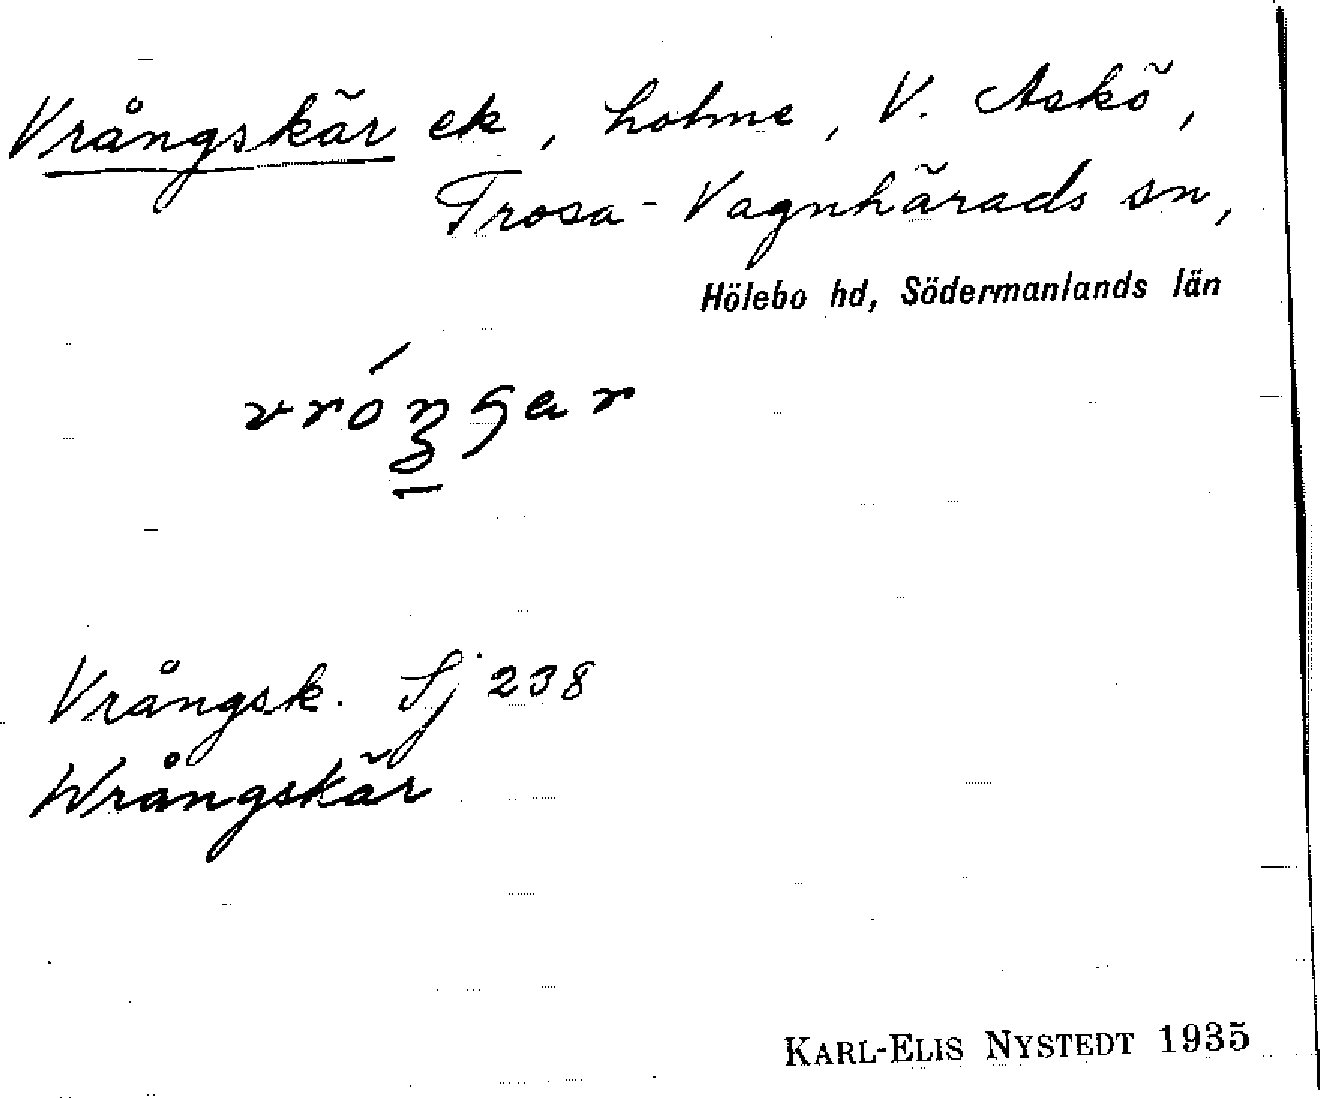 Vrångskär ek, holme, V. Askö,
Trosa-Vagnhärads sn,
Hölebo hd, Södermanlands län
Vrångsk. Sj 238
Wrångskär
KARL-ELIS NYSTEDT 1935